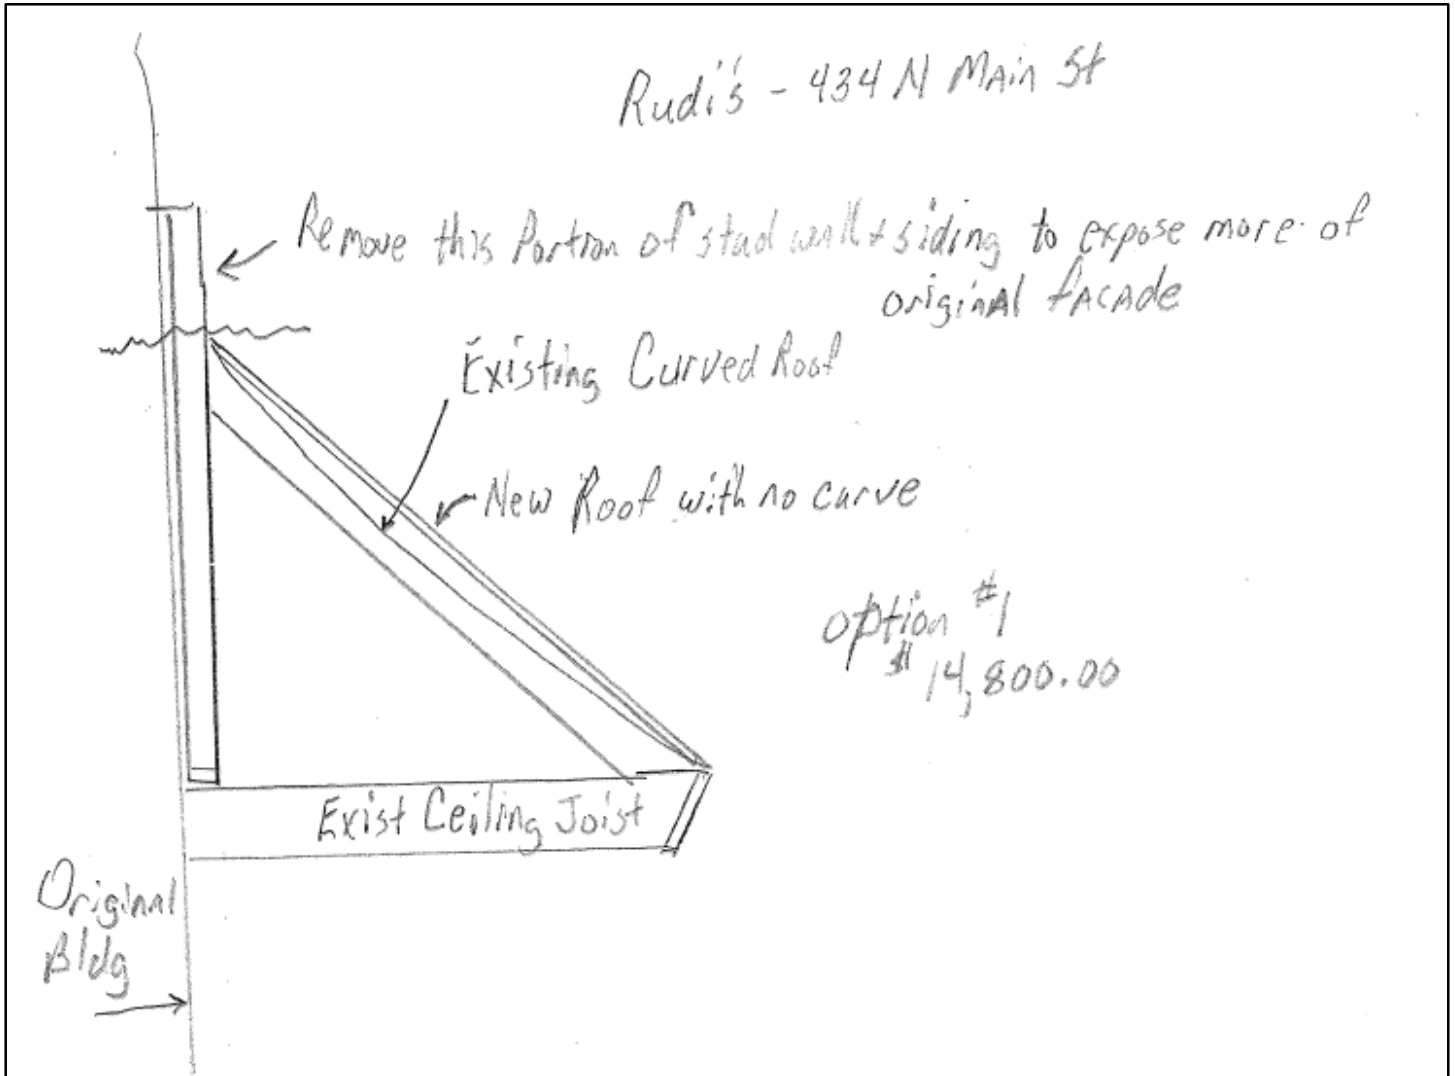 Rudi's - 434 N Main St
Remove this Portion of stud wall & siding to expose more of
original facade
Existing Curved Roof
New Roof with no curve
option #1
$14,800.00
Exist Ceiling Joist
Original
Bldg